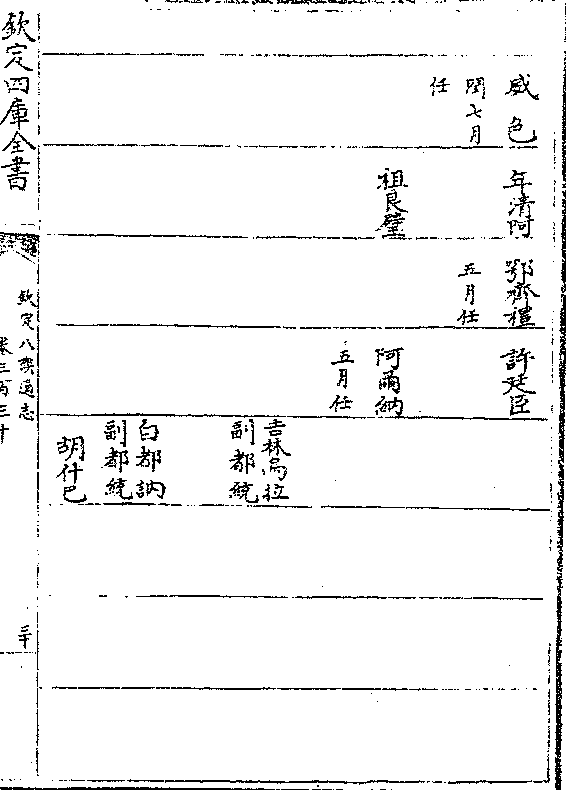 威色
閏七月
任
年清阿
祖良璧
鄂齊禮
五月任
許廷臣
阿爾納
五月任
吉林烏拉
副都統
白都訥
副都統
胡什巴
欽定四庫全書
欽定八旗通志
卷三百三十
三十